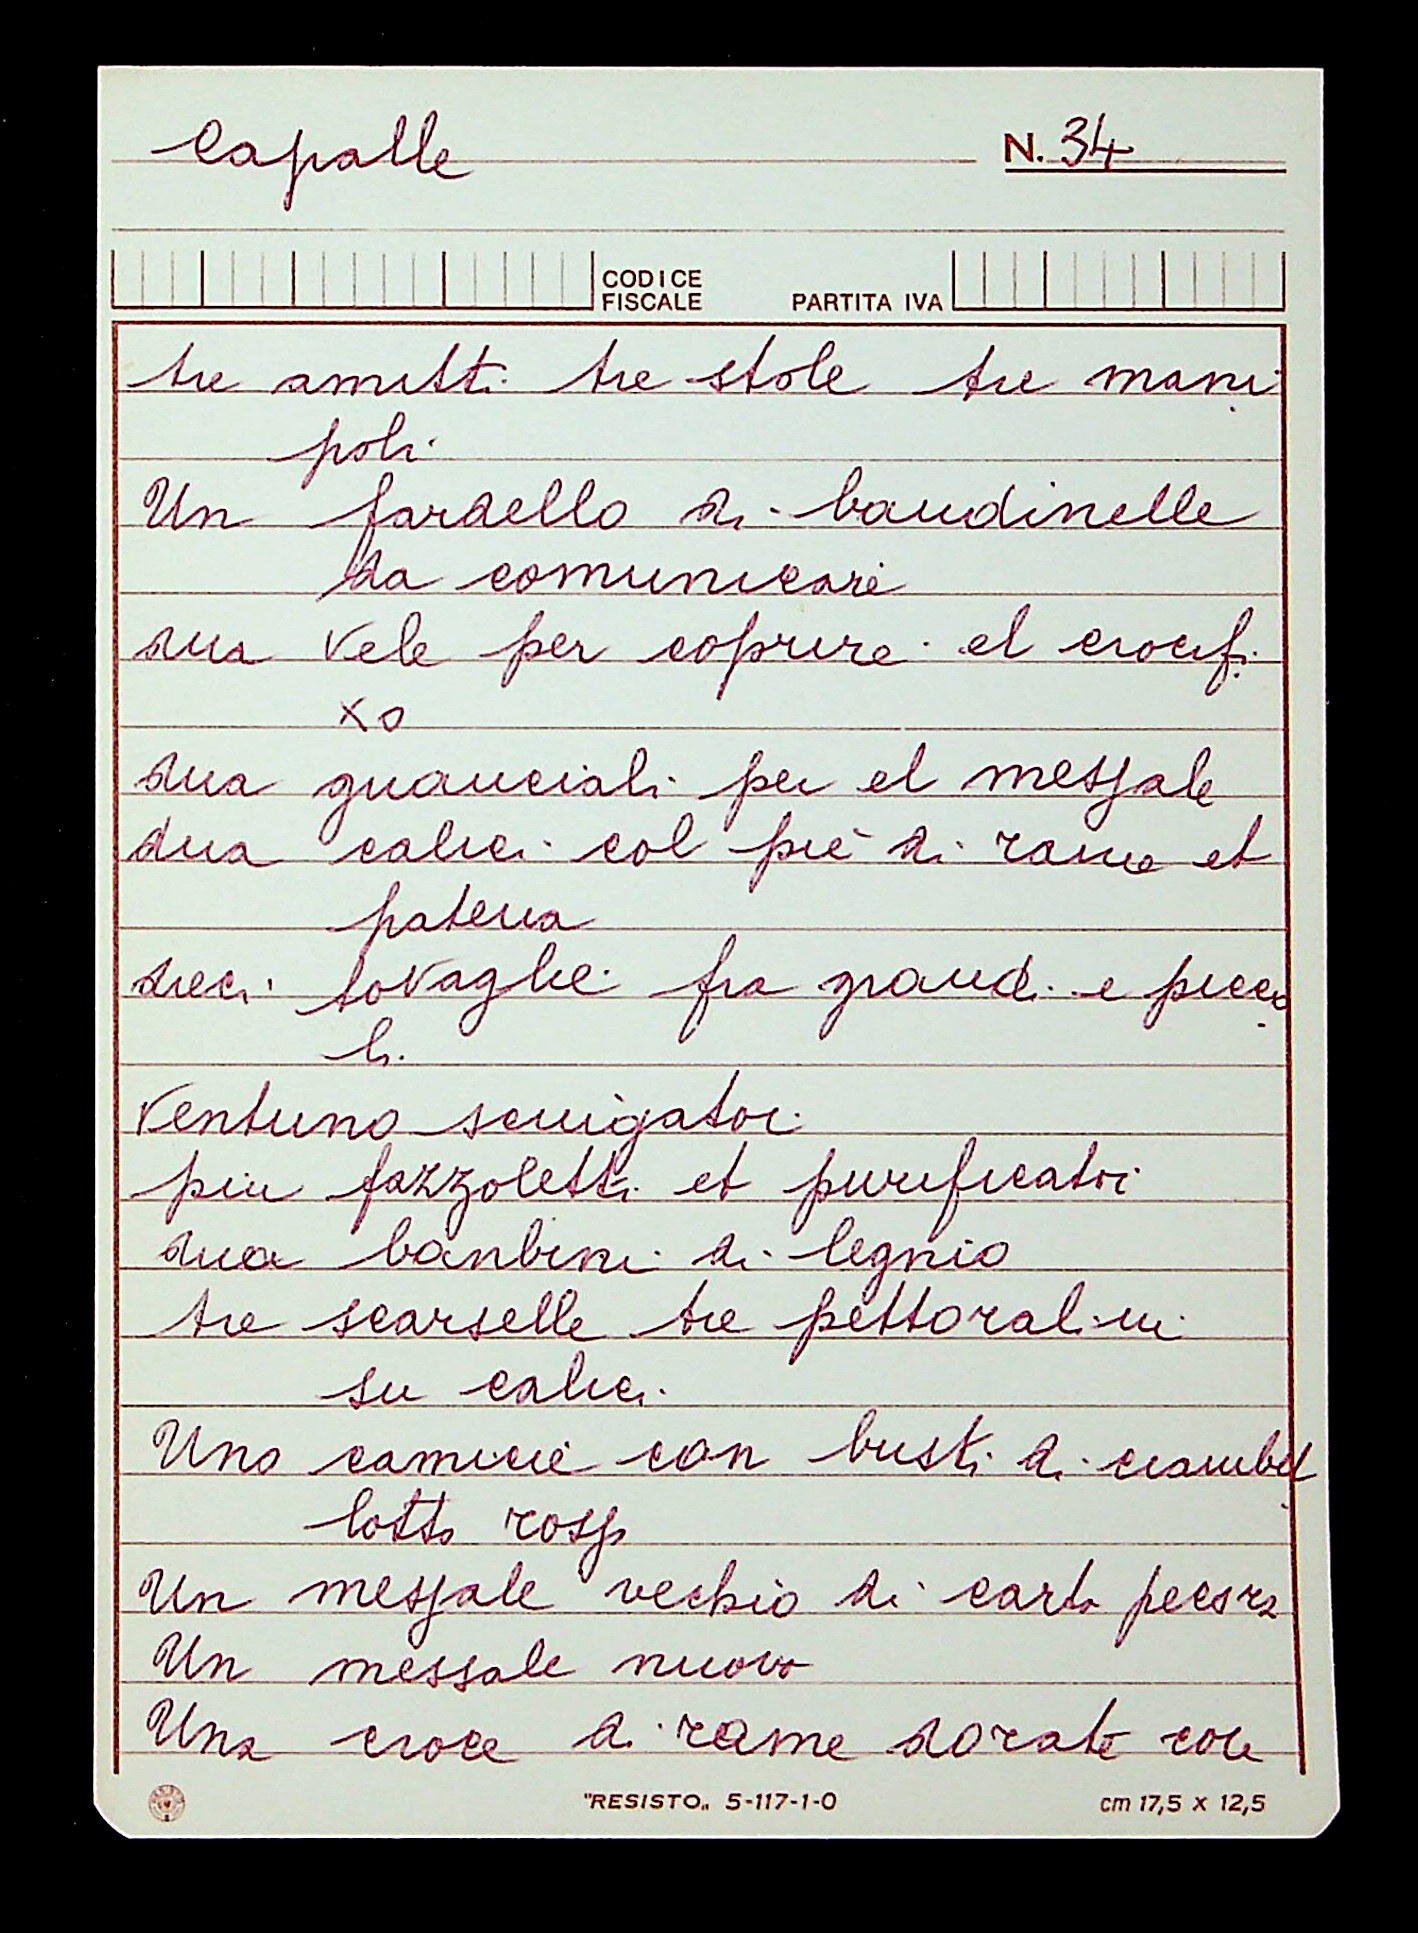 Capalle
N. 34
CODICE
FISCALE
PARTITA IVA
tre amitti tre stole tre mani
poli
Un fardello di baudinelle
da comunicare
dua vele per coprire el crocifi
xo
dua guanciali per el messale
dua calici col piè di rame et
patena
dieci tovaglie fra grandi e picco
li
Ventuno sciugatoi
piu fazzoletti et purificatoi
dua banbini di legnio
tre scarselle tre pettoralini
su calici
Uno camicie con busti di ciambel
lotto rosso
Un messale vechio di carta pecora
Un messale nuovo
Una croce di rame dorate con
"RESISTO„ 5-117-1-0
cm 17,5 x 12,5